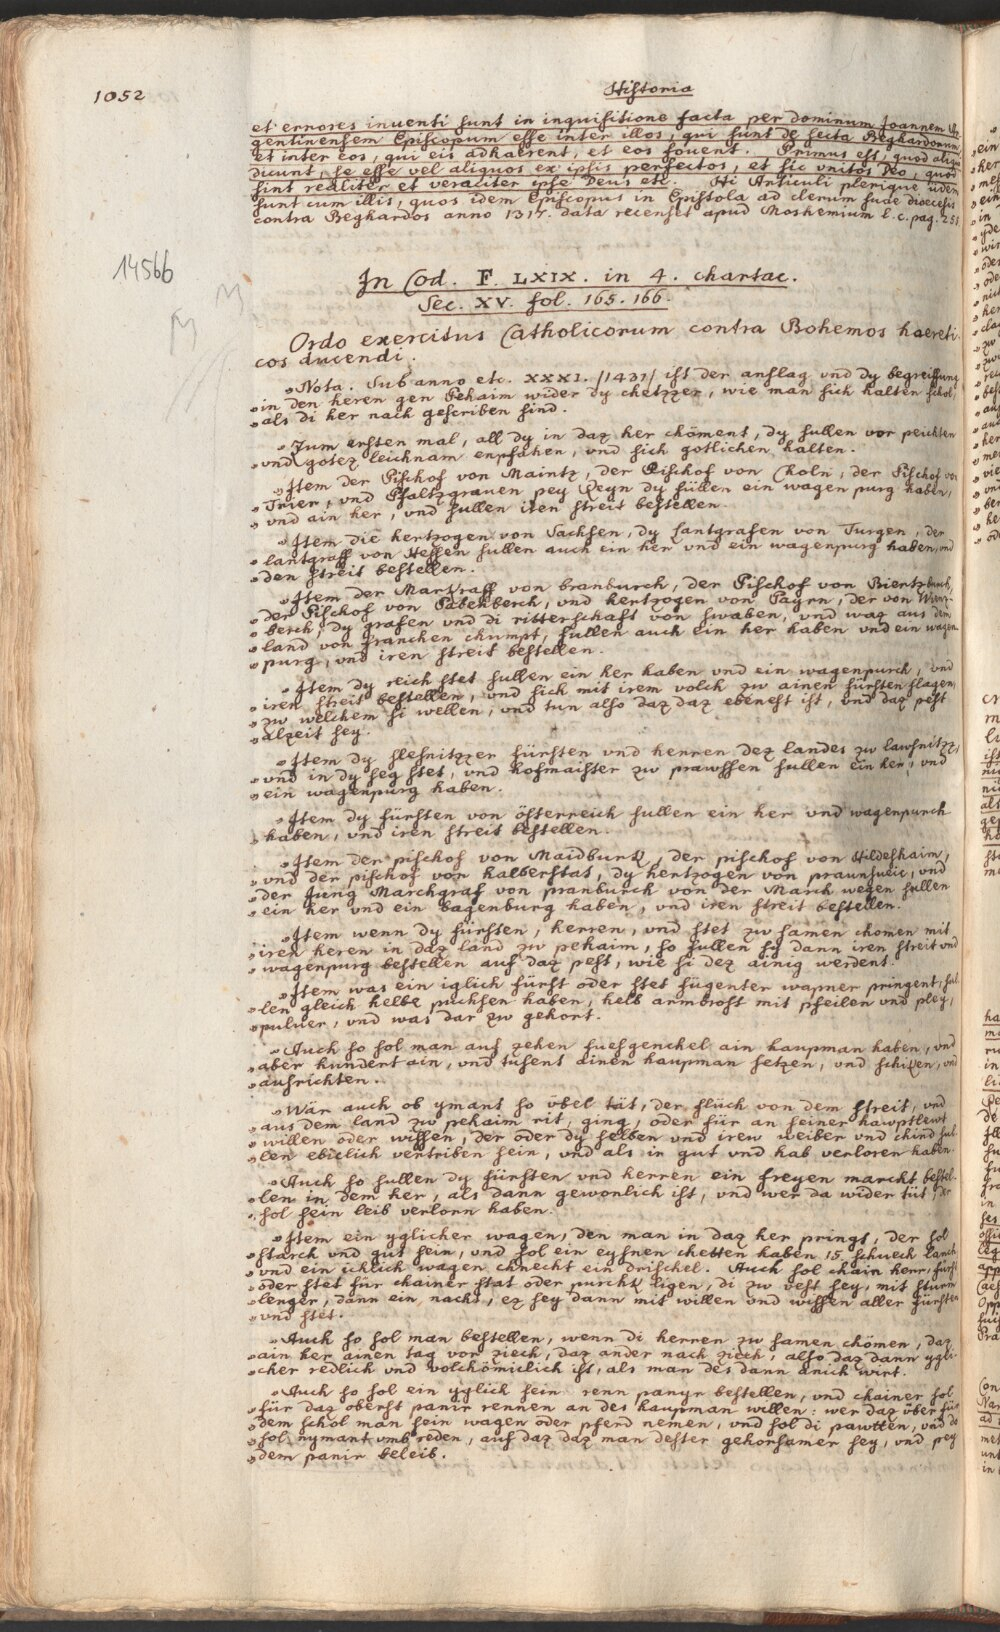 1052
Historia
et errores inventi sunt in inquisitione facta per dominum Joannem
gentinensem Episcopum esse inter illos, qui sunt de secta Beghardorum,
et inter eos, qui eis adhaerent, et eos fovent. Primus est, quod aliqui
dicunt, se esse vel aliquos ex ipsis perfectos, et sic unitos Deo, quod
sint realiter et veraciter ipse Deus etc. Hi Articuli plerique iidem
sunt cum illis, quos idem Episcopus in Epistola ad clerum suae dioecesis
contra Beghardos anno 1317. data recenset apud Moshemium l. c. pag. 251
14566
In Cod. F. LXIX. in 4. chartac.
Sec. XV. fol. 165. 166.
Ordo exercitus Catholicorum contra Bohemos haereti-
cos ducendi.
„Nota. Sub anno etc. XXXI. /1431/ ist der anslag vnd dy begreiffung
„in den heren gen Pehaim wider dy chetzzer, wie man sich halten schol,
„als di her nach gescriben sind.
„Zum ersten mal, all dy in daz her chöment, dy sullen vor peichten
„vnd gotez leichnam enpfahen, vnd sich gotlichen halten.
„Item der Pischof von Maintz, der Pischof von Choln, der Pischof von
„Trier, vnd Pfaltzgrauen pey Reyn dy süllen ein wagen purg haben,
„vnd ain her, vnd sullen iren streit bestellen.
„Item die hertzogen von Sachsen, dy lantgrafen von Turgen, der
„lantgraff von Hessen sullen auch ein her vnd ein wagenpurg haben, vnd
„den streit bestellen.
„Item der Markraff von branburch, der Pischof von Biertzburch,
„der Pischof von Pabenberch, vnd hertzogen von Payrn, der von
„berch, dy grafen vnd di ritterschaft von swaben, vnd waz aus dem
„land von franchen chumpt, sullen auch ein her haben vnd ein wagen
„purg, vnd iren streit bestellen.
„Item dy reich stet sullen ein her haben vnd ein wagenpurch, vnd
„iren streit bestellen, vnd sich mit irem volch zw ainen fürsten slagen,
„zw welchem si wellen, vnd tun also daz daz ebenest ist, vnd daz pest
„alzeit sey.
„Item dy slesnitzzer fürsten vnd herren dez landes zw lawsnitzz,
„vnd in dy seg stet, vnd hofmaister zw prawssen sullen ein her, vnd
„ein wagenpurg haben.
„Item dy fürsten von österreich sullen ein her vnd wagenpurch
„haben, vnd iren streit bestellen.
„Item der pischof von Maidburk, der pischof von Hildeshaim,
„vnd der pischof von halberstat, dy hertzogen von praunsueic, vnd
„der Jung Marchgraf von pranburck von der March wegen sullen
„ein her vnd ein bagenburg haben, vnd iren streit bestellen.
„Item wenn dy fürsten, herren, vnd stet zw samen chomen mit
„iren heren in daz land zw pehaim, so sullen sy dann iren streit vnd
„wagenpurg bestellen auf daz pest, wie si dez ainig werdent.
„Item was ein iglich fürst oder stet fügenter wapner pringent, sul
„len gleich helbe puchsen haben, helb armbrost mit pfeilen vnd pley,
„puluer, vnd was dar zw gehort.
„Auch so sol man auf zehen fuesgenchel ain haupman haben, vnd
„aber hundert ain, vnd tusent ainen haupman setzen, vnd schiken, vnd
„ausrichten.
„Wär auch ob ymant so übel tät, der flüch von dem streit, vnd
„aus dem land zw pehaim rit, ging, oder für an seiner hawptlewt
„willen oder wissen, der oder dy selben vnd irew weiber vnd chind sul
„len ebiclich vertriben sein, vnd als ir gut vnd hab verloren haben.
„Auch so sullen dy fürsten vnd herren ein freyen marckt bestel-
„len in dem her, als dann gewonlich ist, vnd wer da wider tüt, der
„sol sein leib verlorn haben.
„Item ein yglicher wagen, den man in daz her pringt, der sol
„starch vnd gut sein, vnd sol ein eysnen chetten haben 15 schuech lanch
„vnd ein icklich wagen chnecht ein drischel. Auch sol chain herr, fürst
„oder stet für chainer stat oder purckt ligen, di zw vest sey, mit sturm
„lenger, dann ein nacht, ez sey dann mit willen vnd wissen aller fürsten
„vnd stet.
„Auch so sol man bestellen, wenn di herren zw samen chömen, daz
„ain her ainen tag vor ziech, daz ander nach ziech, also daz dann ygli-
„cher redlich vnd volchömiclich ist, als man des dann anich wirt.
„Auch so sol ein yglich sein renn panyr bestellen, vnd chainer sol
„für daz oberst panir rennen an des haupman willen: wer daz über für
„dem schol man sein wagen oder pferd nemen, vnd sol di pawtten, vnd do
„sol nymant vmb reden, auf daz daz man dester gehorsamer sey, vnd pey
„dem panir beleib.